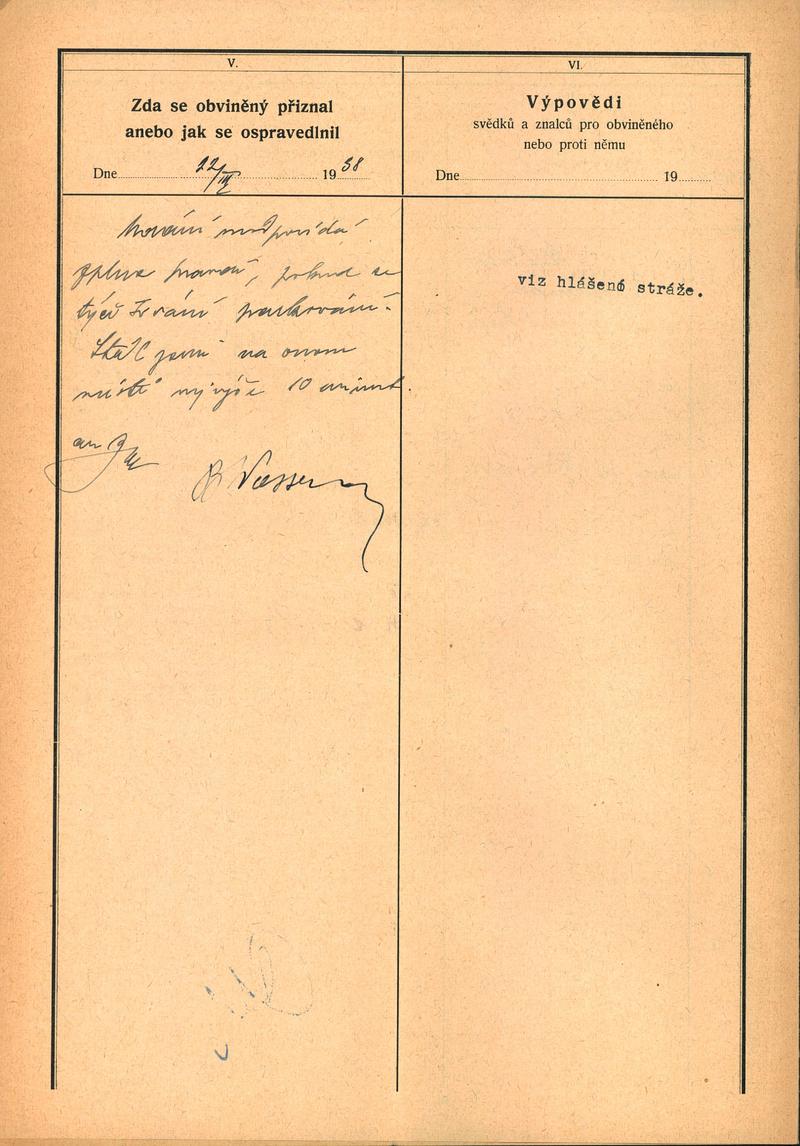 V.
Zda se obviněný přiznal
anebo jak se ospravedlnil
Dne 22/III 1938
Udání neodpovídá
zplna pravdě, pokud se
týče trvání parkování.
Stál jsem na onom
místě nejvýše 10 minut.
VI.
Výpovědi
svědků a znalců pro obviněného
nebo proti němu
Dne 19
viz hlášenó stráže.